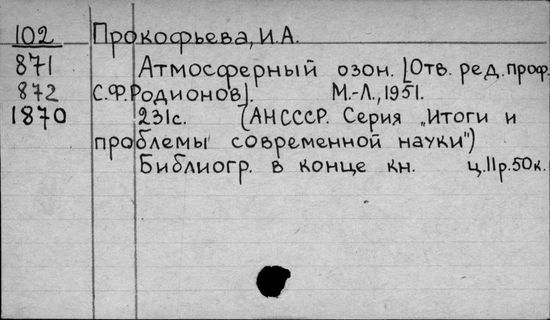 102 Прокофьева, И.А.
871 Атмосферный озон. [Отв. ред. проф.
872 С.Ф.Родионов]. М.-Л., 1951.
1870 231с. (АН СССР. Серия „Итоги и
проблемы современной науки")
Библиогр. в конце кн. ц. 11р. 50к.